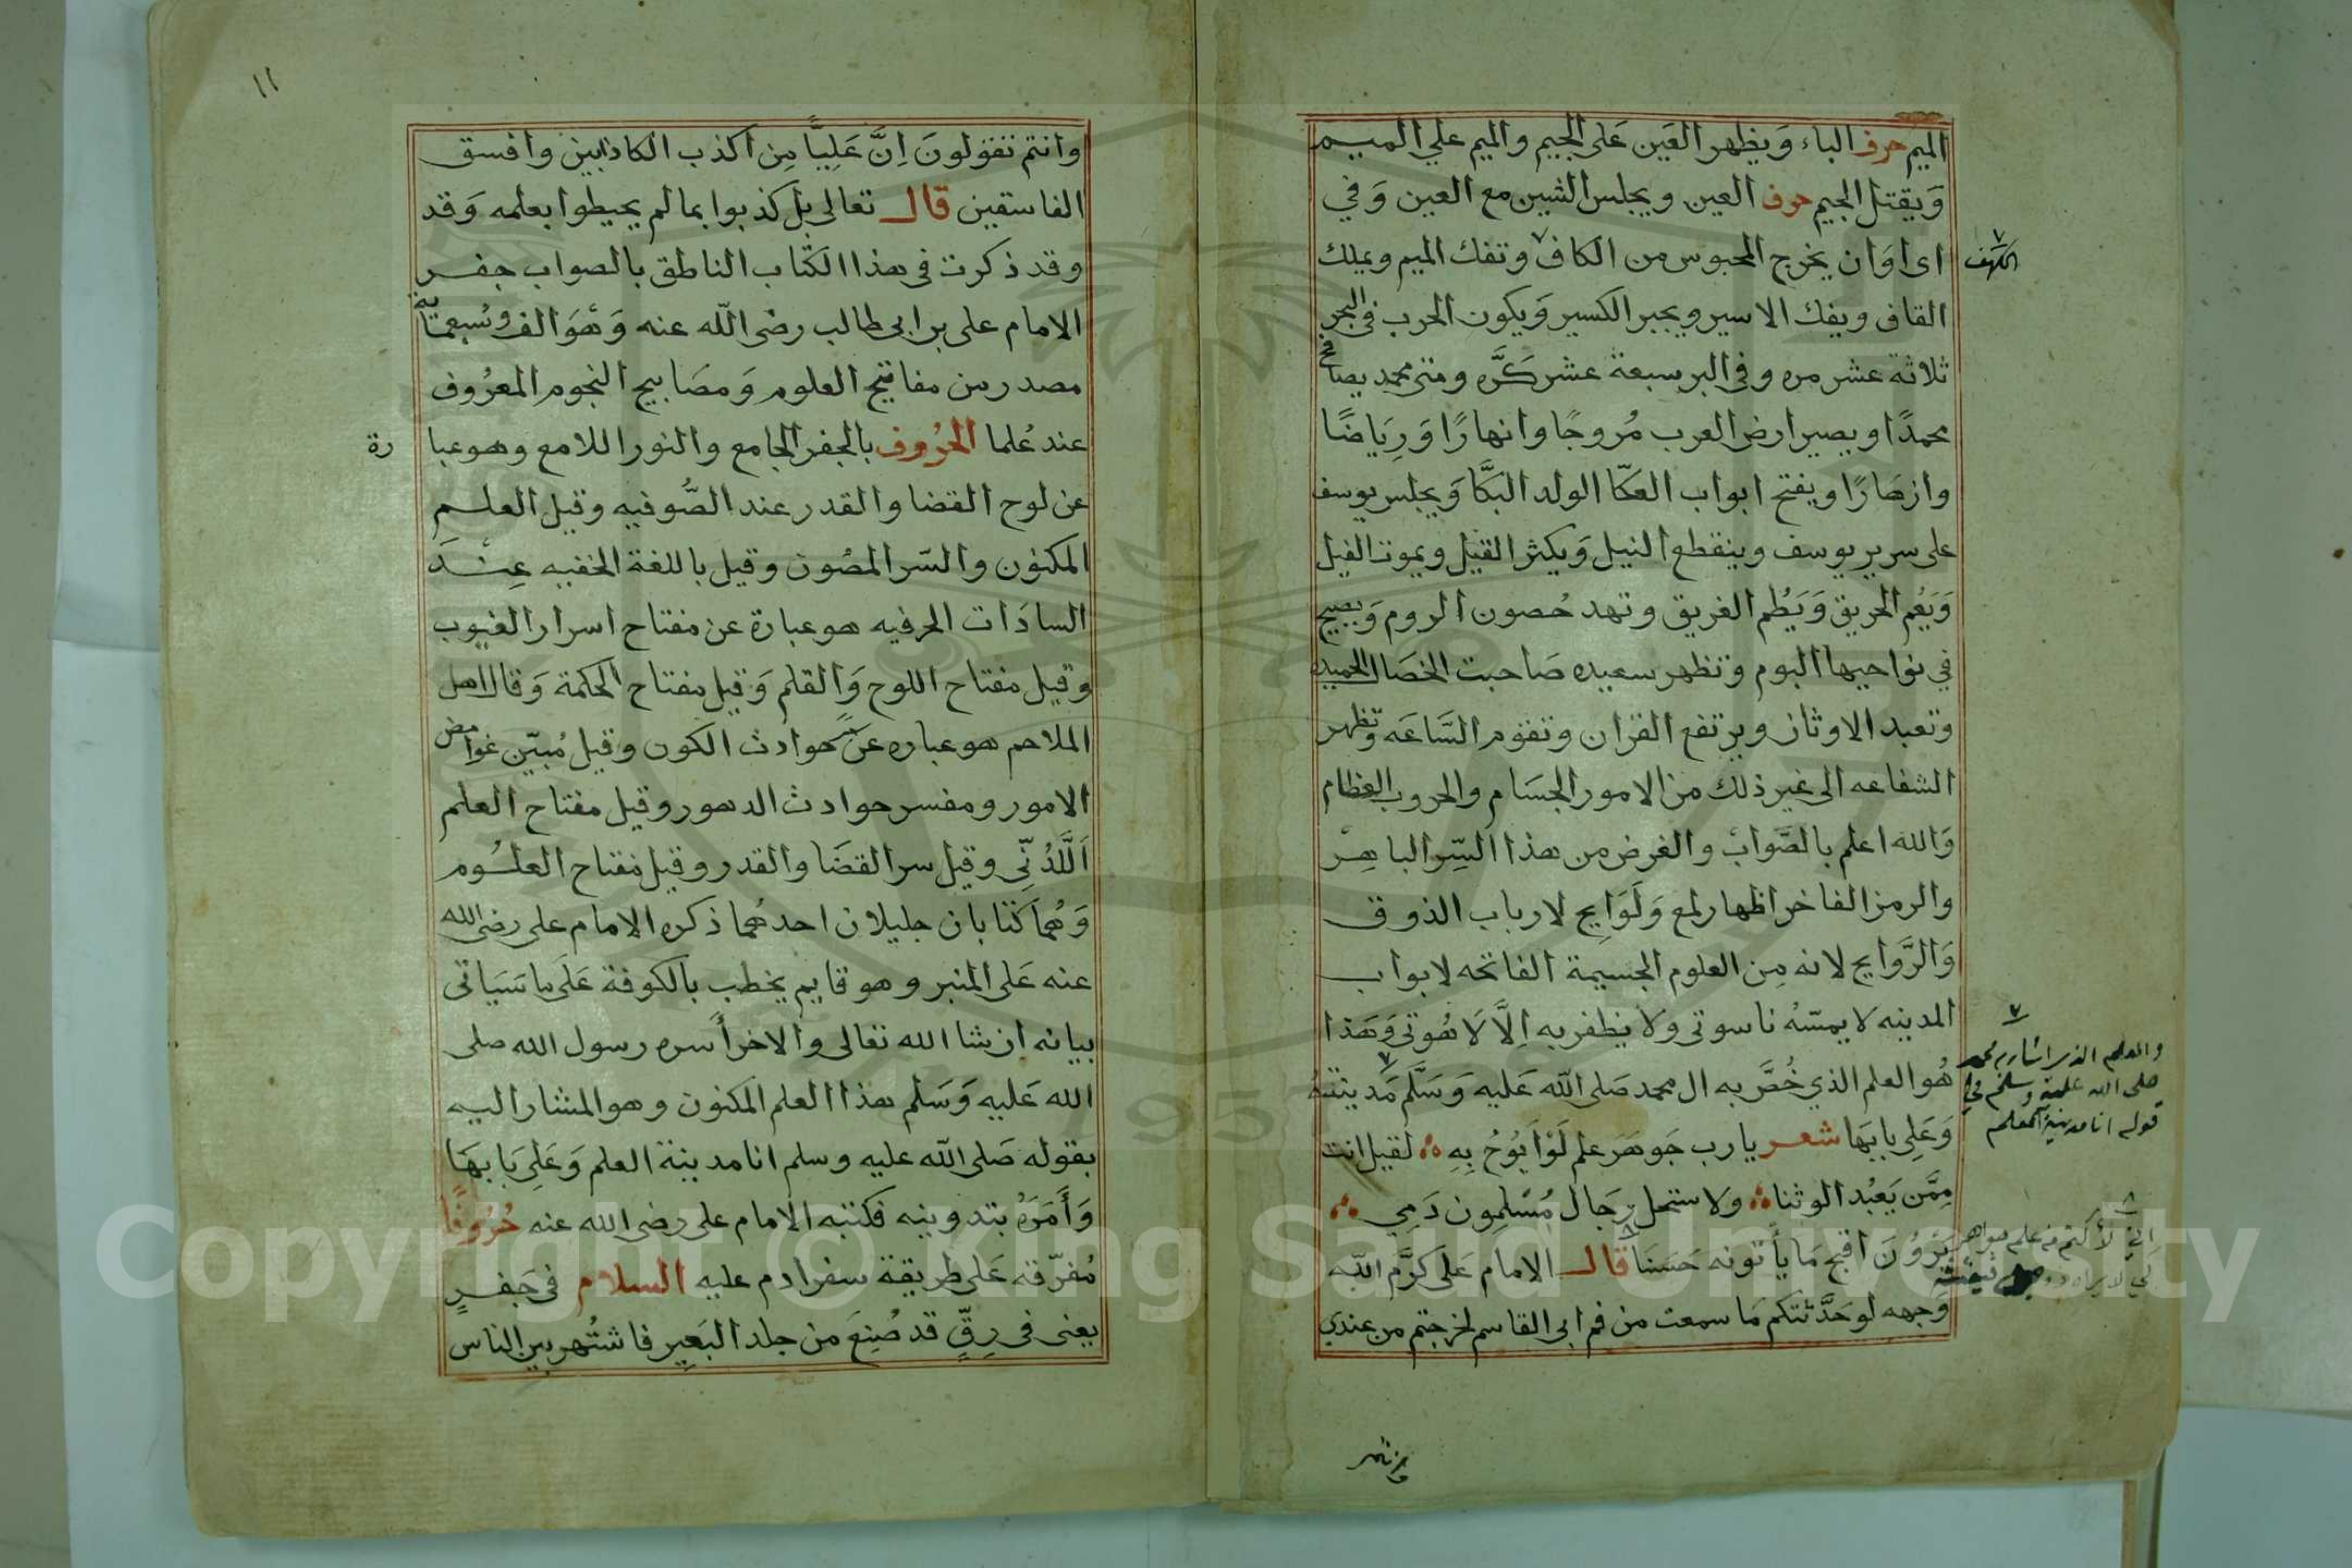 الميم حرف الباء وَيظهر العَين عَلى الجيم والميم علي الميم
وَيقتل الجيم حرف العين ويجلس الشين مع العين وَفي
اى اوَان يخرج المحبوس من الكاف وتفك الميم ويملك
الكهف
القاف ويفك الاسير ويجبر الكسير وَيكون الحرب في البحر
ثلاثة عشر مره وفى البر سبعة عشر كَرَّه ومتى محمد يصافح
محمدًا ويصير ارض العرب مُروجًا وانهارًا وَرِيَاضًا
وازهَارًا ويفتح ابواب العكّا الولد البَكَّا وَيجلس يوسف
على سرير يوسف وينقطع النيل وَيكثر القيل ويموت الفيل
وَيَعُم الحريق وَيَطُم الغريق وتهد حُصون الروم وَيصيح
في نواحيها البوم وتظهر سعيده صَاحبت الخصَال الحميده
وتعبد الاوثان ويرتفع القران وتقوم السَّاعَه وتظهر
الشفاعه الى غير ذلك من الامور الجسَام والحروب العظام
وَالله اعلم بالصَّواب والغرض من هذا السِّر الباهِر
والرمز الفاخر اظهار لمع وَلَوَايح لارباب الذوق
وَالرَّوايح لانه مِن العلوم الجسيمة الفاتحه لابواب
المدينه لا يمسّهُ ناسوتى ولا يظفر به اِلَّا لَاهُوتى وَهَذا
هُو العلم الذي خُصَّ به ال محمد صَلى الله عَليه وَسَلَّم مَدينتهُ
والعلم الذي اشار به محمد
صلى الله عليه وسلم في
قوله انا مدينة العلم
وَعَلِى بابَها شعر يارب جَوهَر علم لَوْ اَبُوحُ بِهِ لقيل انت
مِمَّن يَعْبُد الوثنا ولا ستحل رجَال مُسْلمِون دَمِي
يَرَوُنَ اقبح مَا ياَتونه حَسَنَا قال الامام عَلَى كرَّم الله
اني لأكتم من علم جواهره
وَجهه لو حَدَّثتكم مَا سمعت من فم ابى القاسم لخرجتم من عندي
وانتم
١١
وانتم تقولونَ اِنَّ عَلِيًّا مِن اكذب الكاذبين وافسق
الفاسقين قال تعالى بل كذبوا بما لم يحيطوا بعلمه وَقد
وقد ذكرت فى هذا الكتاب الناطق بالصواب جفر
الامام على بن ابى طالب رضى الله عنه وَهْوَ الف وسُبعمَائة
مصدر من مفاتيح العلوم وَمصَابيح النجوم المعرُوف
عند عُلما الحرُوف بالجفر الجامع والنور اللامع وهو عبا رة
عن لوح القضا والقدر عند الصُّوفيه وقيل العلم
المكنون والسّر المصُون وقيل باللغة الخفيه عِنْدَ
السادَات الحرفيه هو عبارة عن مفتاح اسرار الغيوب
وقيل مفتاح اللوح وَالقلم وَقيل مفتاح الحكمة وَقال اهل
الملاحم هو عباره عَن حوادث الكون وقيل مُبيّن غوامض
الامور ومفسر حوادث الدهور وقيل مفتاح العلم
اَللَّدُنّى وقيل سر القضَا والقدر وقيل مفتاح العلُوم
وَهُمَا كتابان جليلان احدهُما ذكره الامام على رضى الله
عنه عَلى المنبر وهو قايم يخطب بالكوفة عَلَى ما سَيَاتى
بيانه ان شا الله تعالى والاخر أَسره رسول الله صلى
الله عَليه وَسَلم هذا العلم المكنون وهو المشار اليه
بقوله صَلى الله عليه وسلم انا مدينة العلم وَعَلِى بَابهَا
وَأَمَرَهُ بتدوينه فكتبه الامام على رضى الله عنه حُرُوفًا
مُفرّقه عَلى طريقة سفر ادم عليه السلام فى جَفرٍ
يعنى فى رِقّ قد صُنِعَ من جلد البَعِير فاشتُهر بين الناس
Copyright © King Saud University